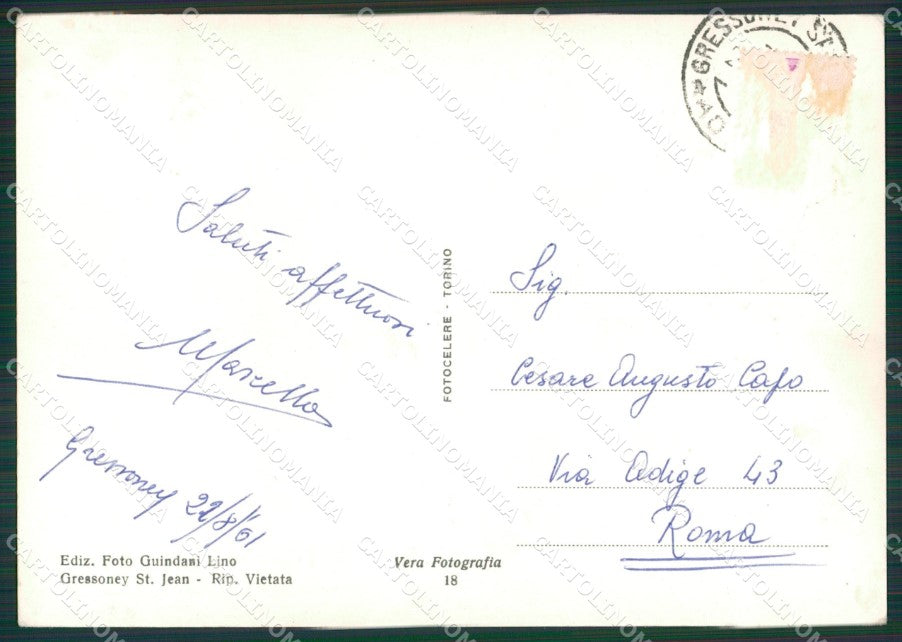 GRESSONEY ST.
Saluti affettuosi
Marcello
Gressoney 22/8/61
Ediz. Foto Guindani Lino
Gressoney St. Jean - Rip. Vietata
FOTOCELERE - TORINO
Vera Fotografia
18
Sig.
Cesare Augusto Cafo
Via Adige 43
Roma
CARTOLINOMANIA